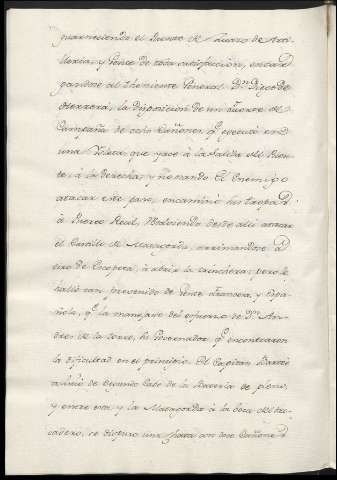 guarneciendo el Puente de Suazo de Arti-
lleria, y Gente de toda satisfaccion, encar-
gandose al Theniente General Dn. Diego de
Herrera, la disposicion de un fuerte de
Campaña de ocho Cañones, q executó en
una Isleta que yace à la salida del Puen-
te, à la derecha; y pensando el Enemigo
atacar este paso, encaminó su tropa
à Puerto Real, Volviendo desde allí atacar
el Castillo de Matagorda, arrimandose à
tiro de Escopeta, à abrir la trinchera; pero le
halló tan prevenido de Gente Francesa, y Espa-
ñola, q la manejase del esfuerzo de Dn. An-
dres de la Torre, su Governador, q encontraron
la dificultad en el principio. El Capitan
de Segundo Cabo de la Bateria de
y entre esta, y la Matagorda à la boca del tro-
cadero, se dispuso una chata con dos Cañones